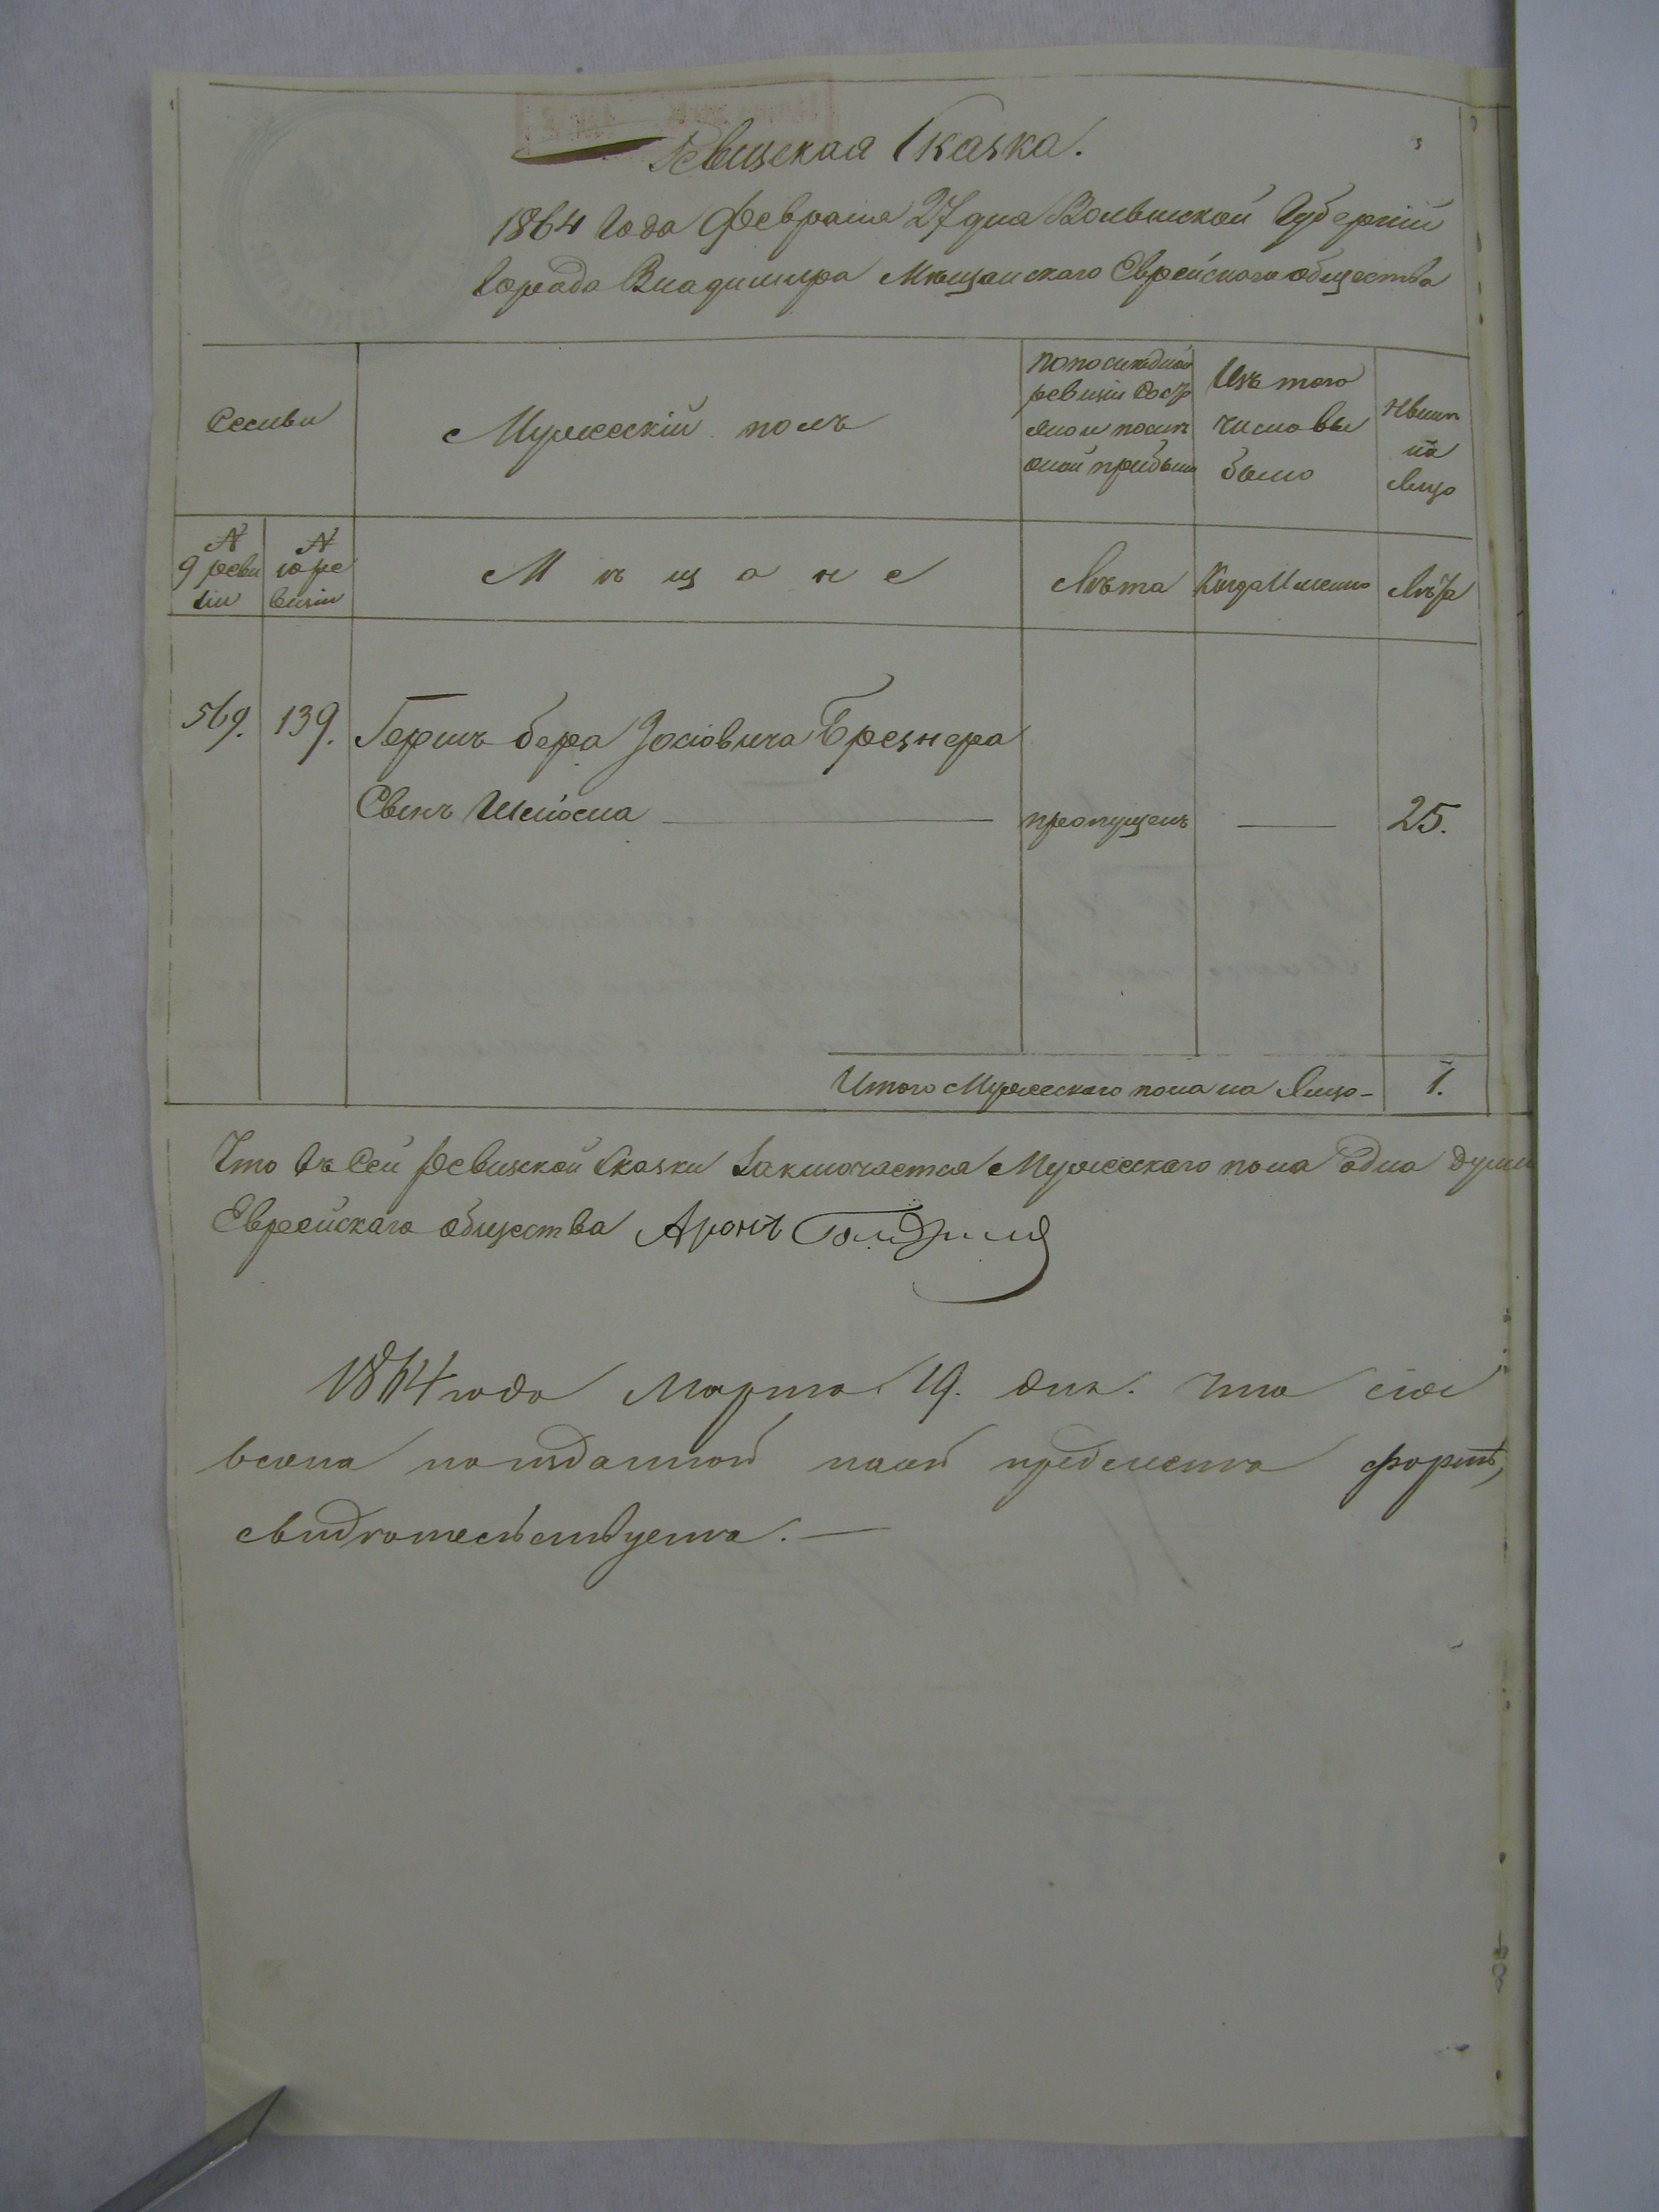 Ревизская Сказка.
1864 Года Февраля 27 дня Волынской Губернiи
Города Владимира Мѣщанского Еврейского общества
Семьи
Мужескiй полъ
По последней
ревизiи состо
яло и послѣ
оной прибыло
Изъ того
числа вы
было
Нынѣ
на
Лицо
№
9 реви
зiи
№
10 ре
визiи
Мѣщане
Лѣта
Когда Именно
Лѣта
569.
139.
Гершъ бера Iосiовича Брезнера
Сынъ
пропущенъ
25.
Итого Мужескаго пола на Лицо
1.
Что въ Сей Ревизской Сказки Заключается Мужескаго пола одна душа
Еврейскаго общества Аронъ
1864 года Марта 19. дня. Что сiя
по изданной на сей предметъ формѣ,
свидѣтельствуетъ.